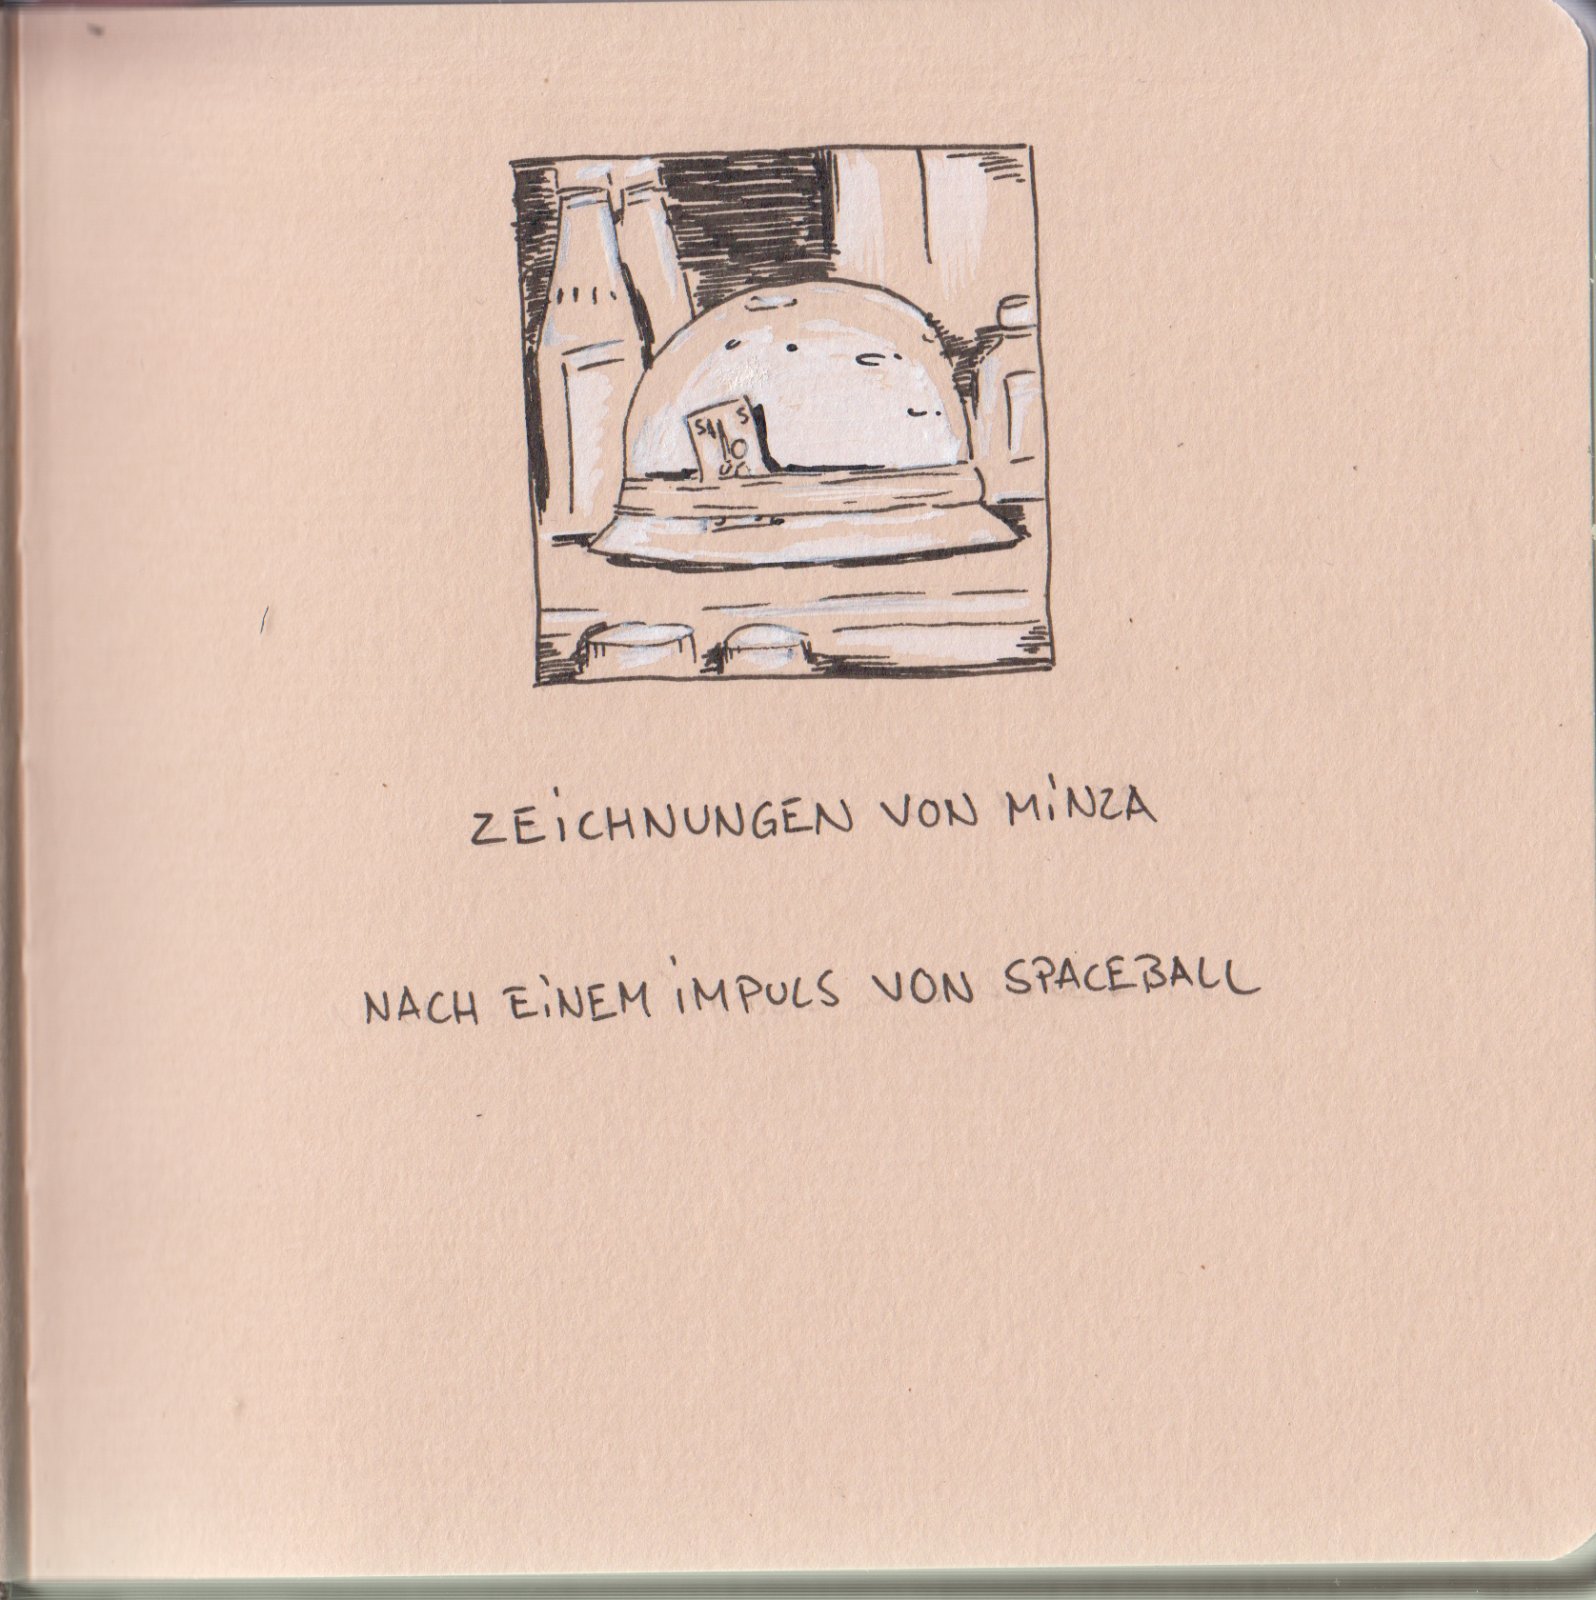 ZEICHNUNGEN VON MINZA
NACH EINEM IMPULS VON SPACEBALL